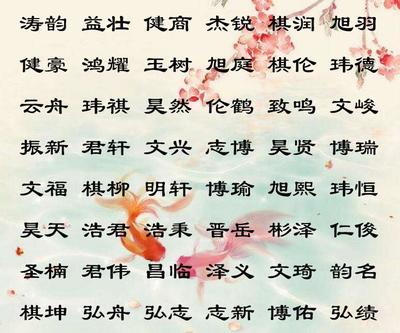 涛韵 益壮 健商 杰锐 棋润 旭羽
健豪 鸿耀 玉树 旭庭 棋伦 玮德
云舟 玮祺 昊然 伦鹤 致鸣 文峻
振新 君轩 文兴 志博 昊贤 博瑞
文福 棋柳 明轩 博瑜 旭熙 玮恒
昊天 浩君 浩秉 晋岳 彬泽 仁俊
圣楠 君伟 昌临 泽义 文琦 韵名
棋坤 弘舟 弘志 志新 博佑 弘绩